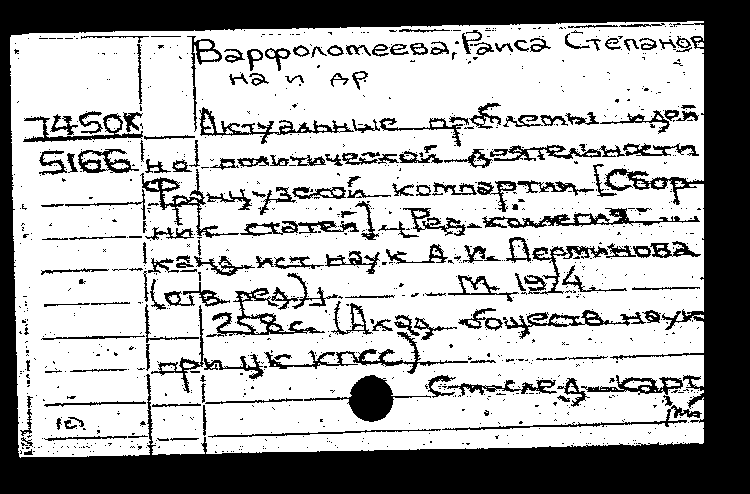 Варфоломеева, Раиса Степанов
на и др
7450К Актуальные проблемы идей
5166 но политической деятельности
Французской компартии [Сбор-
ник статей]. [Ред. коллегия: ...
канд ист наук А. И. Пертинова
(отв ред.)]. М., 1974.
258 с. (Акад. обществ. наук
при ЦК КПСС)
См след. карт.